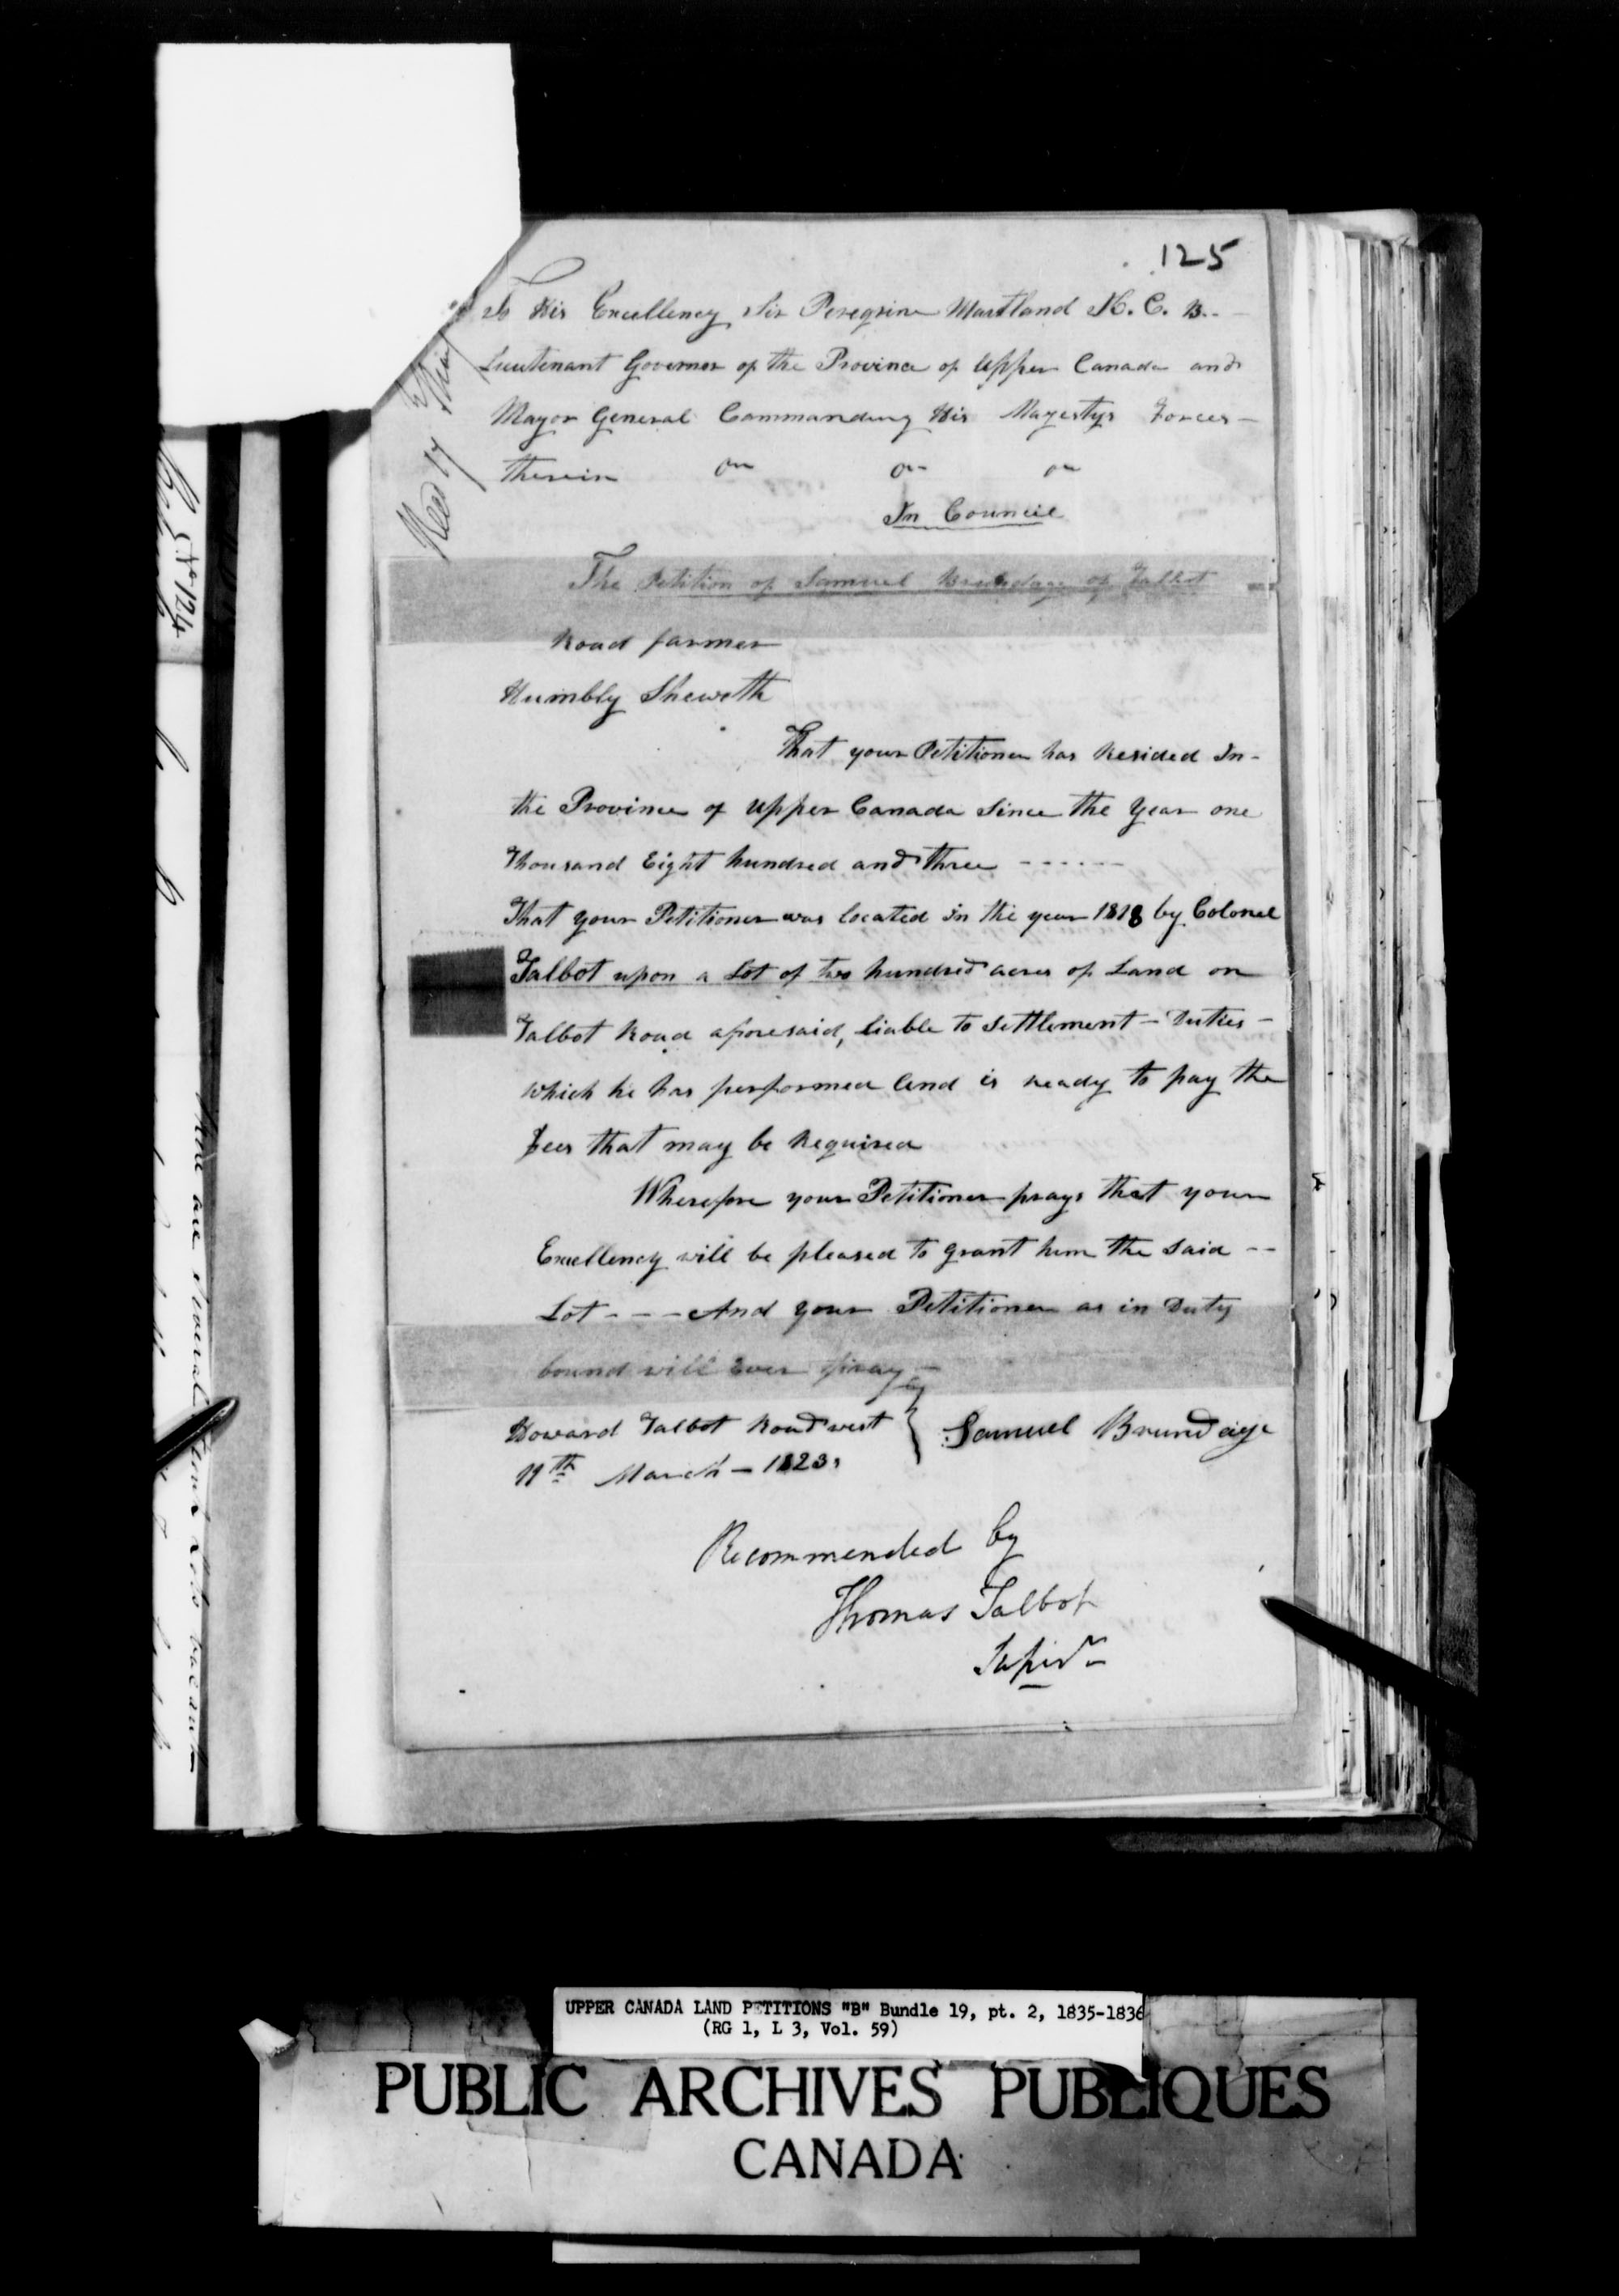 125
To His Excellency Sir Peregrine Maitland K. C. B.
Lieutenant Governor of the Province of Upper Canada and
Mayor General Commanding His Magestys Forces
therein
In Council
The Petition of Samuel Brundage of Talbot
Road farmer
Humbly Sheweth
That your Petitioner has Resided In
the Province of Upper Canada Since the Year one
Thousand Eight hundred and three ------
That your Petitioner was located in the year 1818 by Colonel
Talbot upon a Lot of two hundred acres of Land on
Talbot Road aforesaid, liable to Settlement - Duties -
which he has performed And is ready to pay the
Fees that may be Required
Wherefore your Petitioner prays that your
Excellency will be pleased to grant him the Said --
Lot - - - And your Petitioner as in Duty
bound will Ever pray -
Howard Talbot Road west } Samuel Brundage
11th March - 1823.
Recommended by
Thomas Talbot
No 124
UPPER CANADA LAND PETITIONS "B" Bundle 19, pt. 2, 1835-1836
(RG 1, L 3, Vol. 59)
PUBLIC ARCHIVES PUBLIQUES
CANADA